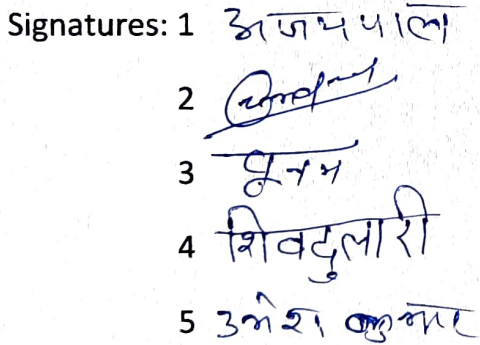 Signatures: 1 अजयपाल
2
3 पूनम
4 शिवदुलारी
5 उमेश कुमार